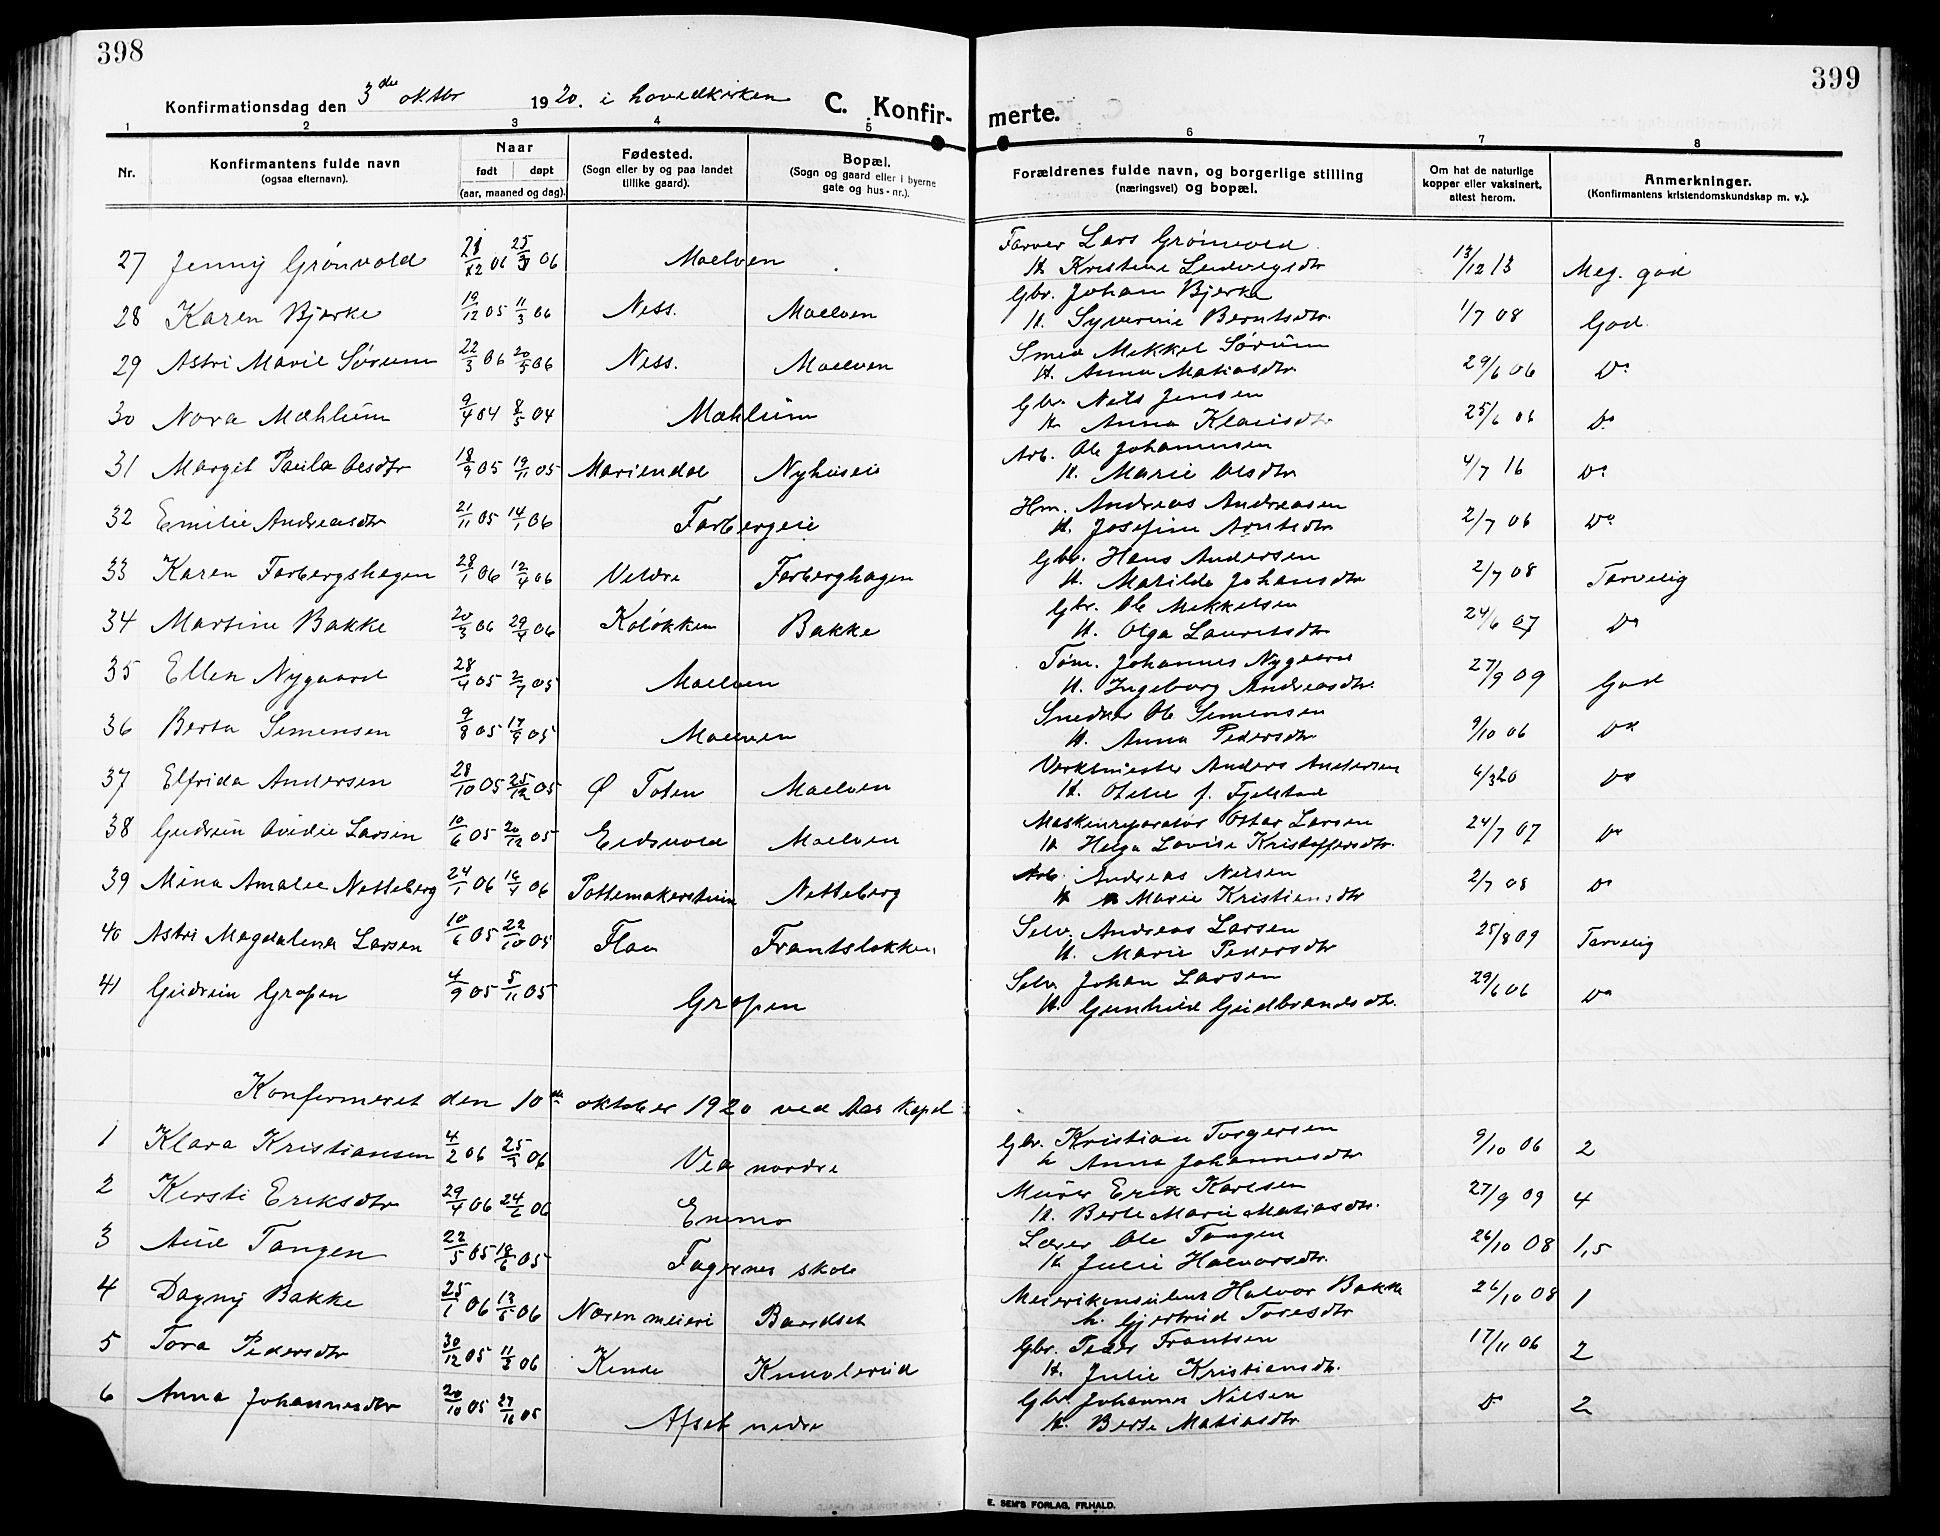 398
399
Konfirmationsdag den 3die oktbr 1920. i hovedkirken C. Konfir-merte.
1 2 3 4 5 6 7 8
Nr.
Konfirmantens fulde navn
(ogsaa efternavn).
Naar
født døpt
(aar, maaned og dag).
Fødested.
(Sogn eller by og paa landet
tillike gaard).
Bopæl.
(Sogn og gaard eller i byerne
gate og hus-nr.).
Forældrenes fulde navn, og borgerlige stilling
(næringsvei) og bopæl.
Om hat de naturlige
kopper eller vaksinert,
attest herom.
Anmerkninger.
(Konfirmantens kristendomskundskap m. v.).
27 Jenny Grönvold 06 06 Maelven Farver Lars Grönvold 13/12 13 Meg. god
H. Kristine Ludvigsdtr
28 Karen Bjerke 19/12 05 11/3 06 Ness. Moelven Gbr. Johan Bjerke 1/7 08 God
H. Syverine Berntsdtr.
29 Astri Marie Sörum 22/3 06 20/5 06 Ness. Moelven Smed Mekkel Sörum 29/6 06 Do
H. Anna Matiasdtr
30 Nora Mæhlum 9/4 04 8/5 04 Mæhlum Gbr. Nils Jensen 25/6 06 Do
H. Anna Klausdtr
31 Margit Paula Olsdtr 18/9 05 19/11 05 Mariendal Nyhuseie Arb. Ole Johannesen 4/7 16 Do
H. Marie Olsdtr
32 Emilie Andreasdtr 21/11 05 14/1 06 Farbergeie Hm. Andreas Andreasen 2/7 06 Do
H. Josefine Arntsdtr
33 Karen Farbergshagen 28/1 06 12/4 06 Veldre Farberghagen Gbr. Hans Andersen 2/7 08 Tarvelig
H. Matilde Johansdtr
34 Martine Bakke 20/3 06 29/4 06 Kolökken Bakke Gbr. Ole Mekkelsen 24/6 07 Do
H. Olga Lauritsdtr
35 Ellen Nygaard 28/4 05 2/7 05 Moelven Tøm. Johannes Nygaard 27/9 09 God
H. Ingeborg Andreasdtr.
36 Berta Simensen 9/8 05 17/9 05 Moelven Snedker Ole Simensen 9/10 06 Do
H. Anna Pedersdtr
37 Elfrida Andersen 28/10 05 25/12 05 Ø Toten Moelven Verkmester Anders Andersen 6/3 20 Do
H. Otilie f. Fjelstad
38 Gudrun Ovidie Larsen 10/6 05 20/12 05 Eidsvold Moelven Maskinreparatør Ottar Larsen 24/7 07 Do
H. Helga Lovise Kristoffersdtr.
39 Mina Amalie Netteberg 24/1 06 16/4 06 Pottemakerstuen Netteberg Arb. Andreas Nilsen 2/7 08 Do
H. Marie Kristiansdtr
40 Astri Magdalena Larsen 10/6 05 22/10 05 Flaa Frantsløkken Selv. Andreas Larsen 25/8 09 Tarvelig
H. Marie Pedersdtr
41 Gudrun Gropen 4/9 05 5/11 05 Gropen Selv. Johan Larsen 29/6 06 Do
H. Gunhild Gudbrandsdtr.
Konfirmeret den 10de oktober 1920 ved Aas kapel
1 Klara Kristiansen 4/2 06 25/3 06 Vea nordre Gbr. Kristian Torgersen 9/10 06 2
h Anna Johannesdtr
2 Kirsti Eriksdtr 29/4 06 24/6 06 Enemo Murer Erik Karlsen 27/9 09 4
H. Berte Marie Matiasdtr.
3 Aud Tangen 22/5 05 18/6 05 Fagernes skole Lærer Ole Tangen 26/10 08 1,5
H. Julie Halvorsdtr.
4 Dagny Bakke 25/1 06 13/5 06 Næren meieri Baardset Meierikonsulent Halvor Bakke 26/10 08 1
h. Gjertrud Toresdtr
5 Tora Pedersdtr 30/12 05 11/3 06 Kinde Knuvlerud Gbr. Peder Frantsen 17/11 06 2
H. Julie Kristiansdtr.
6 Anna Johannesdtr 20/10 05 05 Afset nedre Gbr. Johannes Nilsen Do 2
H. Berte Matiasdtr
E. SEM'S FORLAG, FR.HALD.